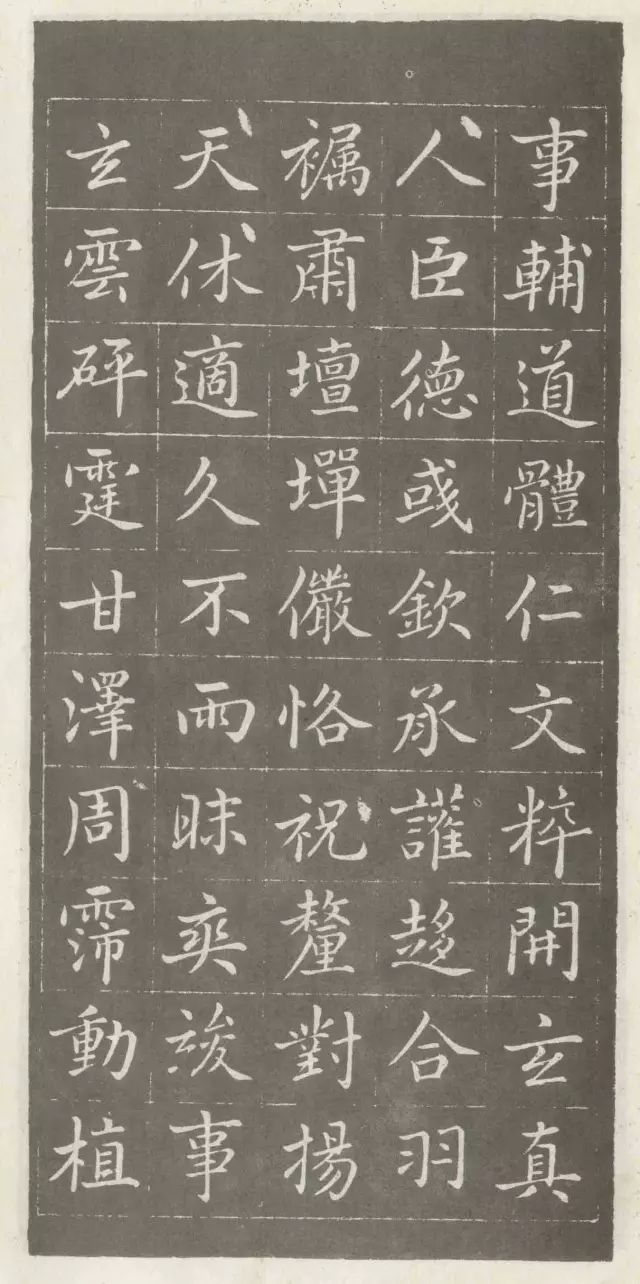 事輔道體仁文粹開玄真
人臣德彧欽承讙趍合羽
襡肅壇墠儼恪祝釐對揚
天休適久不雨昧爽竣事
玄雲砰霆甘澤周霈動植